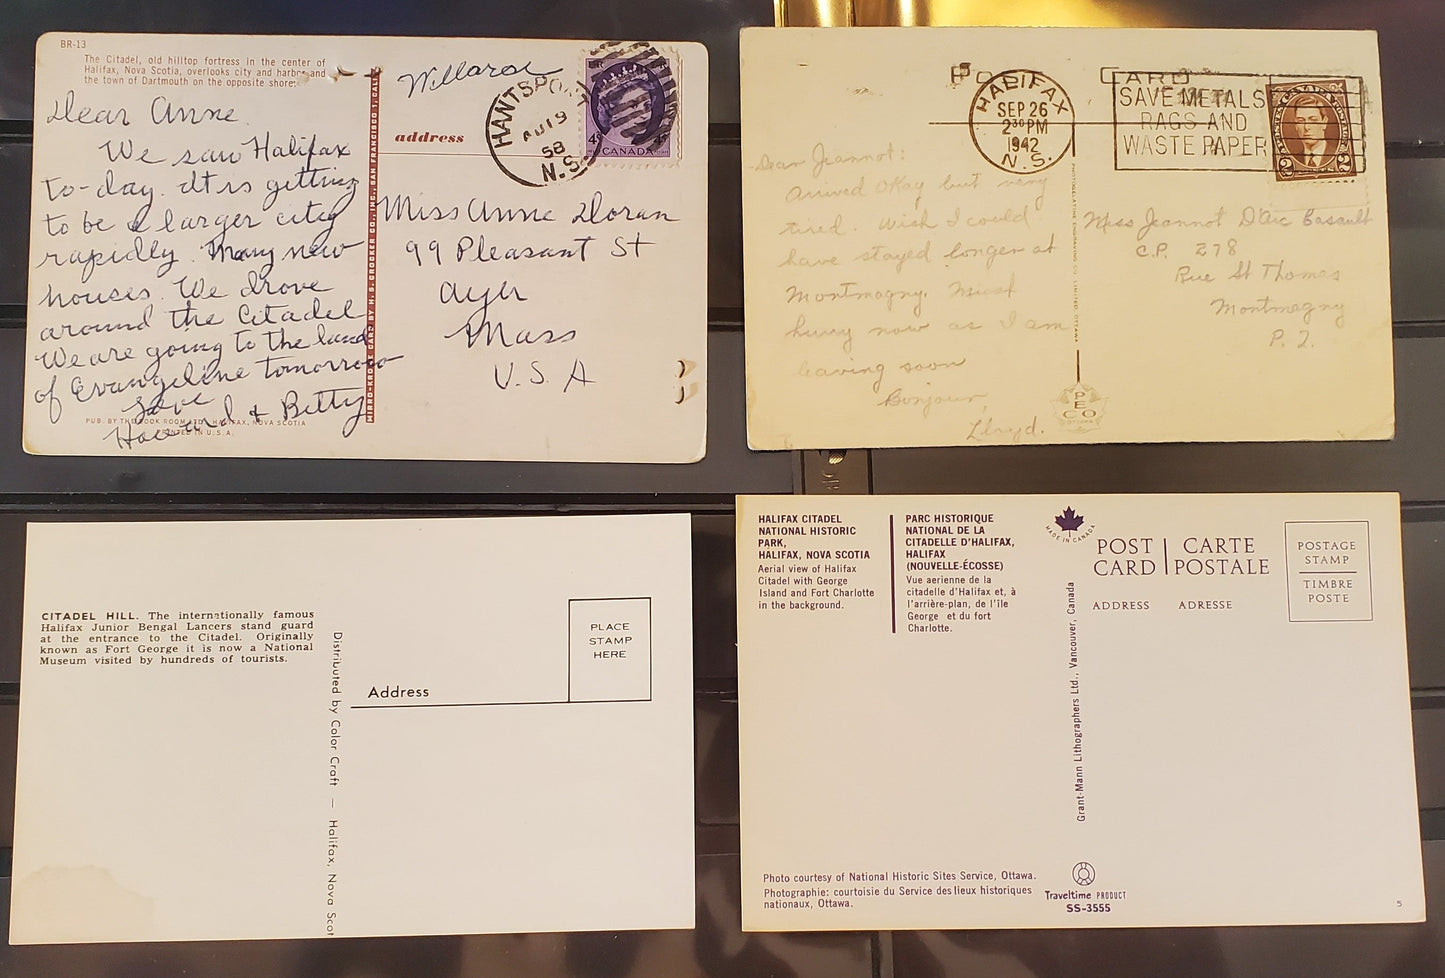 BR-13
The Citadel, old hilltop fortress in the center of
Halifax, Nova Scotia, overlooks city and harbor and
the town of Dartmouth on the opposite shore.
Dear Anne.
We saw Halifax
to-day. It is getting
to be a larger city
rapidly. Many new
houses. We drove
around the Citadel
We are going to the land
of Evangeline tomorrow
Love
Howard & Betty
PUB. BY THE BOOK ROOM LTD., HALIFAX, NOVA SCOTIA
PRINTED IN U.S.A.
MIRRO-KROME CARD BY H. S. CROCKER CO., INC., SAN FRANCISCO 1, CALIF.
address
HANTSPORT
AU 19
58
N.S.
4
CANADA
Miss Anne Doran
99 Pleasant St
Ayer
Mass
U.S.A
CARD
HALIFAX
SEP 26
2 30 PM
1942
N.S.
SAVE METALS
RAGS AND
WASTE PAPER
2
Dear Jeannot:
Arrived Okay but very
tired. Wish I could
have stayed longer at
Montmagny. Must
hurry now as I am
leaving soon
Bonjour,
Lloyd.
PHOTOGELATINE ENGRAVING CO. LIMITED, OTTAWA
PECO
OTTAWA
Miss Jeannot
C.P. 278
Rue St Thomas
Montmagny
P. Q.
CITADEL HILL. The internationally famous
Halifax Junior Bengal Lancers stand guard
at the entrance to the Citadel. Originally
known as Fort George it is now a National
Museum visited by hundreds of tourists.
Distributed by Color Craft — Halifax, Nova Scot
Address
PLACE
STAMP
HERE
HALIFAX CITADEL
NATIONAL HISTORIC
PARK,
HALIFAX, NOVA SCOTIA
Aerial view of Halifax
Citadel with George
Island and Fort Charlotte
in the background.
PARC HISTORIQUE
NATIONAL DE LA
CITADELLE D'HALIFAX,
HALIFAX
(NOUVELLE-ÉCOSSE)
Vue aerienne de la
citadelle d'Halifax et, à
l'arrière-plan, de l'île
George et du fort
Charlotte.
MADE IN CANADA
POST CARD
CARTE POSTALE
ADDRESS
ADRESSE
POSTAGE
STAMP
TIMBRE
POSTE
Grant-Mann Lithographers Ltd., Vancouver, Canada
Photo courtesy of National Historic Sites Service, Ottawa.
Photographie: courtoisie du Service des lieux historiques
nationaux, Ottawa.
Traveltime PRODUCT
SS-3555
5